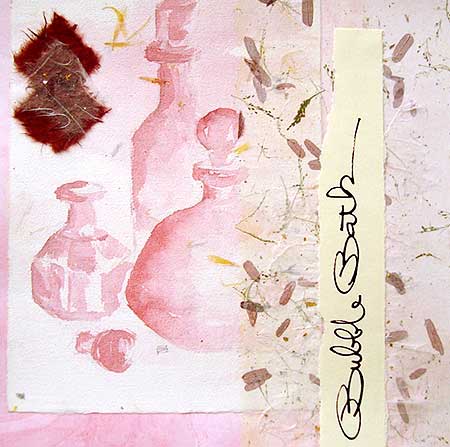 Bubble Bath